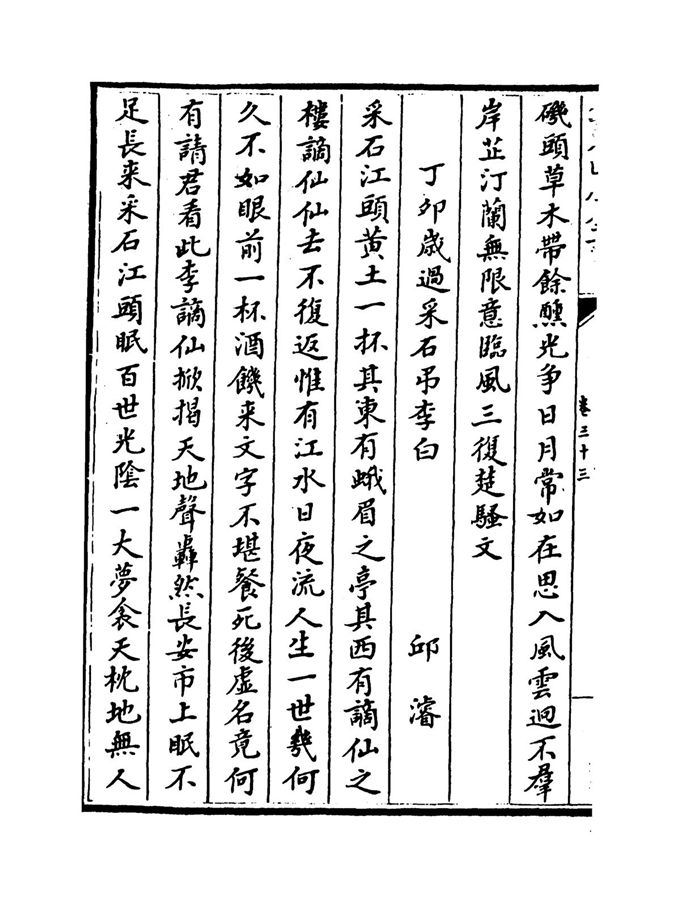 磯頭草木帶餘醺光爭日月常如在思入風雲迥不羣
岸芷汀蘭無限意臨風三復楚騷文
丁夘歲過采石弔李白 邱濬
采石江頭黃土一抔其東有蛾眉之亭其西有謫仙之
樓謫仙仙去不復返惟有江水日夜流人生一世幾何
久不如眼前一杯酒饑來文字不堪餐死後虛名竟何
有請君看此李謫仙掀揭天地聲轟然長安市上眠不
足長來采石江頭眠百世光陰一大夢衾天枕地無人
卷三十三